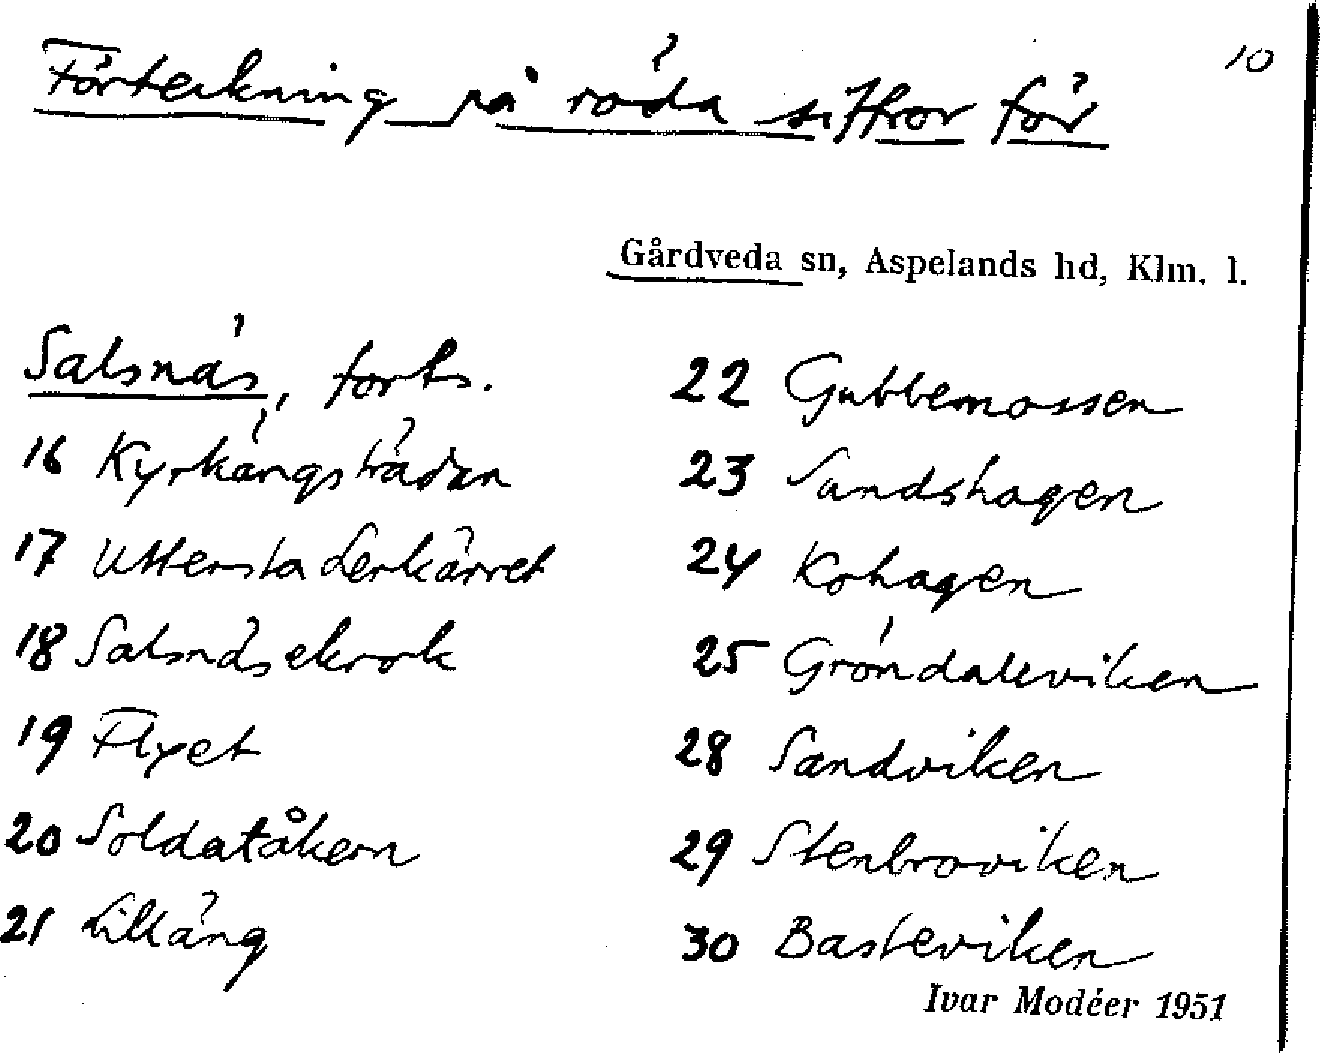 10
Förteckning på röda siffror för
Gårdveda sn, Aspelands hd, Klm. l.
Salsnäs, forts.
16 Kyrkängsträdan
17 Utterstaderkärret
18 Salsnäsekrok
19 Flyet
20 Soldatåkern
21 Lilläng
22 Gubbemossen
23 Sandshagen
24 Kohagen
25 Gröndalsviken
28 Sandviken
29 Stenbroviken
30 Basteviken
Ivar Modéer 1951